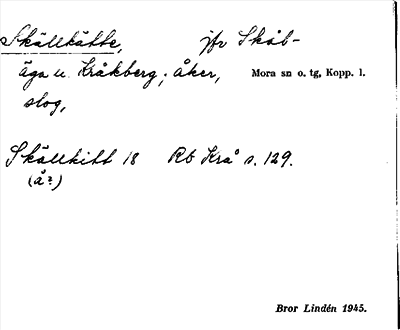 Skällkätte, jfr Skål-
äga u. Kråkberg; åker, Mora sn o. tg, Kopp. l.
slog,
Skällkitt 18 Rb Krå s. 129.
(å?)
Bror Lindén 1945.